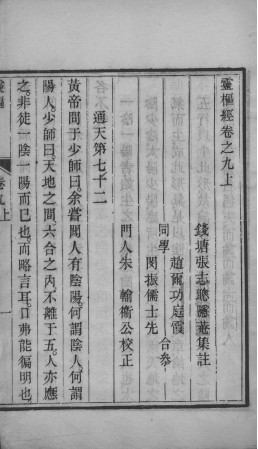 靈樞經卷之九上
錢塘張志聰隱菴集註
同學
趙爾功庭霞
閔振儒士先
合叅
門人朱　輪衞公校正
通天第七十二
黃帝問于少師曰余嘗聞人有陰陽何謂陰人何謂
陽人少師曰天地之間六合之內不離于五人亦應
之非徒一陰一陽而已也而略言耳口弗能徧明也
卷九上